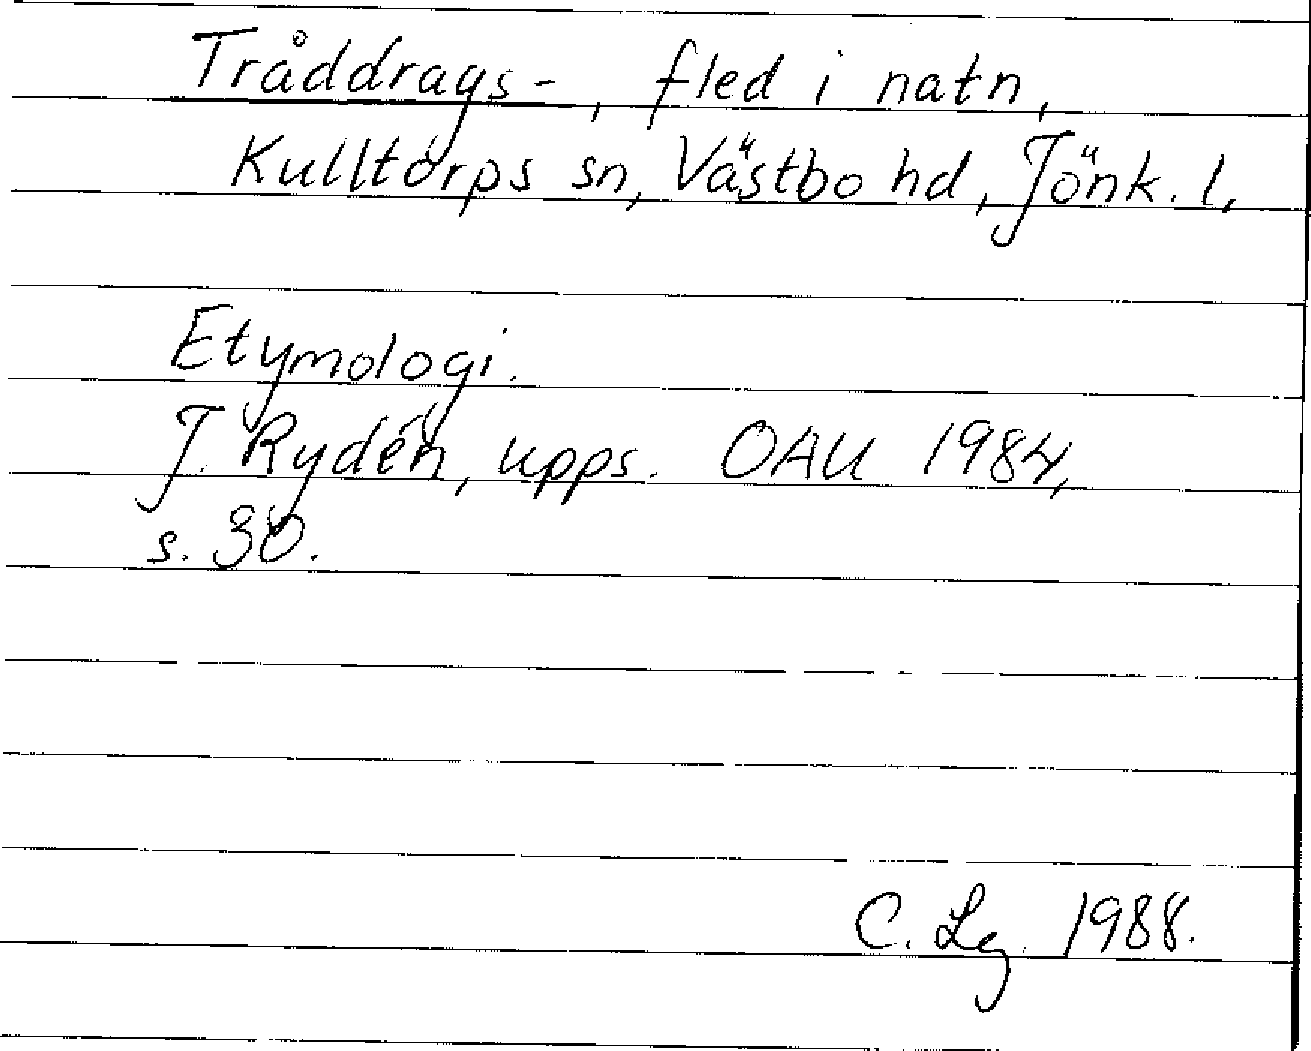 Tråddrags-, fled i natn,
Kulltorps sn, Västbo hd, Jönk. l.
Etymologi.
J. Rydén, upps. OAU 1984,
s. 30.
C. Lg. 1988.